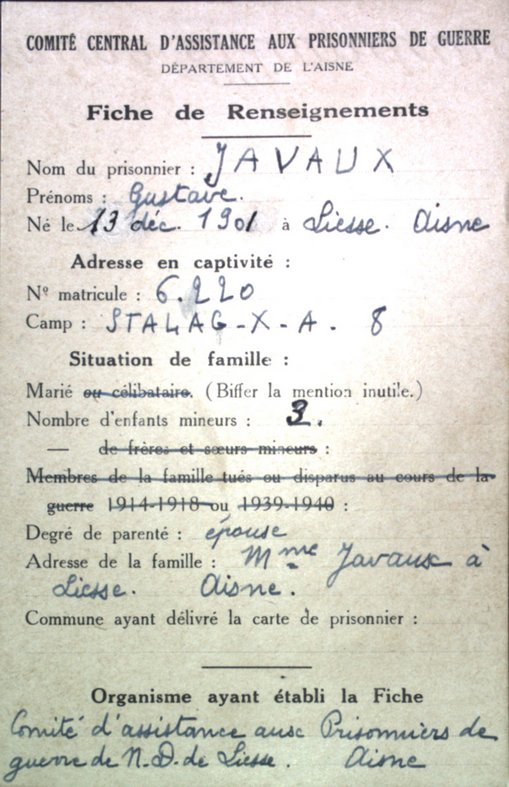 COMITÉ CENTRAL D'ASSISTANCE AUX PRISONNIERS DE GUERRE
DÉPARTEMENT DE L'AISNE
Fiche de Renseignements
Nom du prisonnier : JAVAUX
Prénoms : Gustave.
Né le 13 déc. 1901 à Liesse. Aisne
Adresse en captivité :
Nº matricule : 6.220
Camp : STALAG-X-A. 8
Situation de famille :
Marié ou célibataire. (Biffer la mention inutile.)
Nombre d'enfants mineurs : 3.
— de frères et sœurs mineurs :
Membres de la famille tués ou disparus au cours de la
guerre 1914-1918 ou 1939-1940 :
Degré de parenté : épouse
Adresse de la famille : Mme Javaux à
Liesse. Aisne.
Commune ayant délivré la carte de prisonnier :
Organisme ayant établi la Fiche
Comité d'assistance aux Prisonniers de
guerre de N.D. de Liesse. Aisne